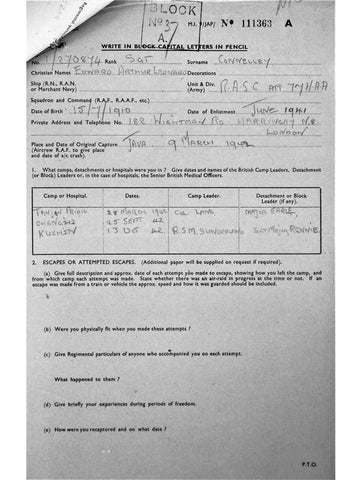 BLOCK
No 27
A.
M.I. 9/JAP/ No 111363 A
WRITE IN BLOCK CAPITAL LETTERS IN PENCIL
No. T/270874 Rank SGT Surname CONNELLEY
Christian Names EDWARD ARTHUR LEONARD Decorations
Ship (R.N., R.A.N. or Merchant Navy) Unit & Div. (Army) R.A.S.C ATT 77 HAA
Squadron and Command (R.A.F., R.A.A.F., etc.)
Date of Birth 15/7/1910 Date of Enlistment JUNE 1941
Private Address and Telephone No. 182 WIGHTMAN RD HARRINGAY N.8.
LONDON
Place and Date of Original Capture JAVA 9 MARCH 1942
(Aircrew R.A.F. to give place
and date of a/c crash).
1. What camps, detachments or hospitals were you in ? Give dates and names of the British Camp Leaders, Detachment
(or Block) Leaders or, in the case of hospitals, the Senior British Medical Officers.
Camp or Hospital. Dates. Camp Leader. Detachment or Block Leader (if any).
TANJON PRIOK 28 MARCH 1942 COL LANE MAJOR EARLE
CHANGHI 25 SEPT 42
KUCHIN 13 OC 42 R.S.M. SUNDERLAND
2. ESCAPES OR ATTEMPTED ESCAPES. (Additional paper will be supplied on request if required).
(a) Give full description and approx. date of each attempt you made to escape, showing how you left the camp, and
from which camp each attempt was made. State whether there was an air-raid in progress at the time or not. If an
escape was made from a train or vehicle the approx. speed and how it was guarded should be included.
(b) Were you physically fit when you made these attempts ?
(c) Give Regimental particulars of anyone who accompanied you on each attempt.
What happened to them ?
(d) Give briefly your experiences during periods of freedom.
(e) How were you recaptured and on what date ?
P.T.O.